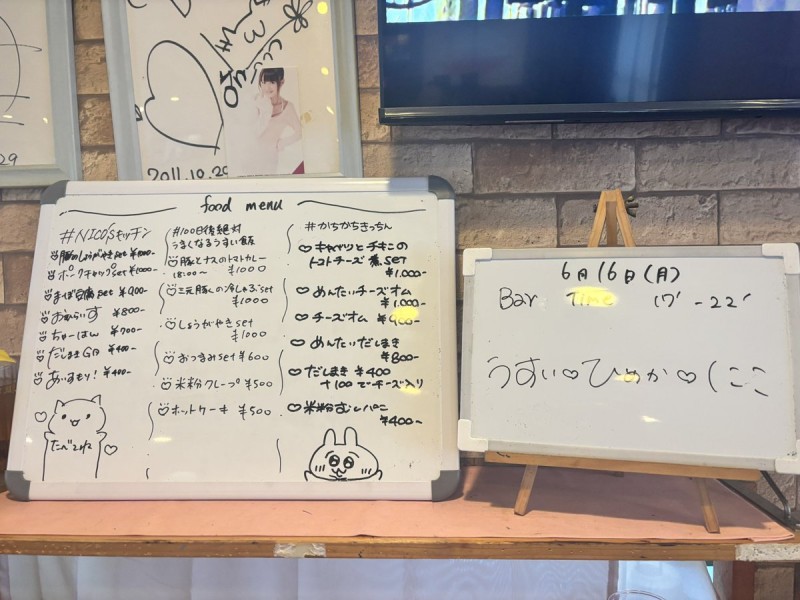 29
2011.10.29
food menu
#NICO'sキッチン
豚のしょうがやきset ¥1000-
ポークチャップset ¥1000-
まぼ豆腐set ¥900-
おむらいす ¥800-
ちゃーはん ¥700-
だしまき ¥400-
あいすもり! ¥400-
たべてね
#100日後絶対
うまくなるうすい飯
豚とナスのトマトカレー
18:00〜 ¥1000
三元豚くの冷しゃぶset
¥1000
しょうがやきset
¥1000
おつまみset ¥600
米粉クレープ ¥500
ホットケーキ ¥500
#かちかちきっちん
キャベツとチキンの
トマトチーズ煮set
¥1,000-
めんたいチーズオム
¥1,000-
チーズオム ¥900-
めんたいだしまき
¥800-
だしまき ¥400
+100でチーズ入り
米粉むしパン
¥400〜
6月16日(月)
Bar Time 17' - 22'
うすい♡ひめか♡(ここ